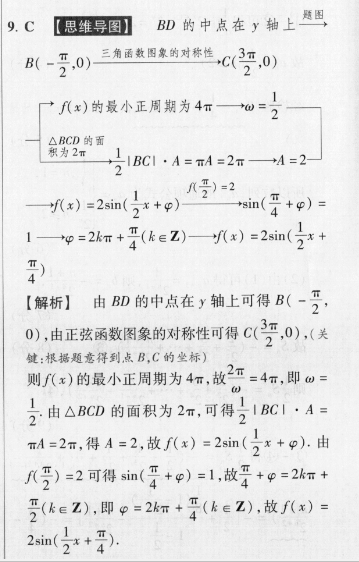 9. C 【思维导图】 BD 的中点在 y 轴上 —题图→
B(-π/2,0) —三角函数图象的对称性→ C(3π/2,0)
→ f(x)的最小正周期为 4π → ω = 1/2
△BCD 的面积为 2π → 1/2|BC|·A = πA = 2π → A = 2
→ f(x) = 2sin(1/2x + φ) —f(π/2) = 2→ sin(π/4 + φ) =
1 → φ = 2kπ + π/4(k∈Z) → f(x) = 2sin(1/2x +
π/4)
【解析】 由 BD 的中点在 y 轴上可得 B(-π/2,
0),由正弦函数图象的对称性可得 C(3π/2,0),(关
键:根据题意得到点 B,C 的坐标)
则 f(x)的最小正周期为 4π,故2π/ω = 4π,即 ω =
1/2. 由△BCD 的面积为 2π,可得1/2|BC|·A =
πA = 2π,得 A = 2,故 f(x) = 2sin(1/2x + φ). 由
f(π/2) = 2 可得 sin(π/4 + φ) = 1,故π/4 + φ = 2kπ +
π/2(k∈Z),即 φ = 2kπ + π/4(k∈Z),故 f(x) =
2sin(1/2x + π/4).